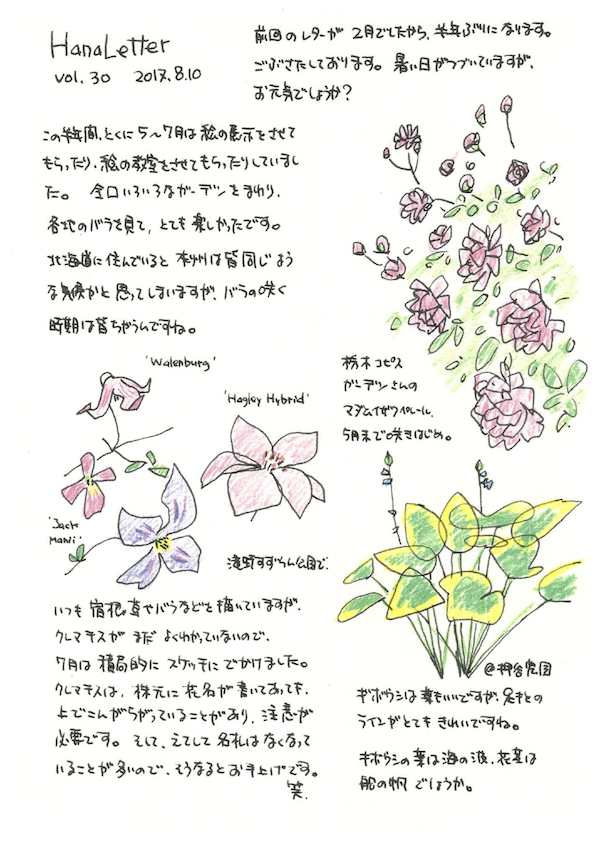 HanaLetter
vol. 30 2017.8.10
前回のレターが2月でしたから、半年ぶりになります。
ごぶさたしております。暑い日がつづいていますが、
お元気でしょうか?
この半年間、とくに5〜7月は絵の展示をさせて
もらったり、絵の教室をさせてもらったりしていまし
た。全国いろいろなガーデンをまわり、
各地のバラを見て、とても楽しかったです。
北海道に住んでいると本州は皆同じよう
な気候かと思ってしまいますが、バラの咲く
時期は皆ちがうんですね。
栃木コピス
ガーデンさんの
マダムイザクペレール、
5月末で咲きはじめ。
'Walenburg'
'Hagley Hybrid'
'Jack
Mani'
滝野すずらん公園で。
いつも宿根草やバラなどを描いていますが、
クレマチスがまだよくわかっていないので、
7月は積局的にスケッチにでかけました。
クレマチスは、株元に花名が書いてあっても、
上でこんがらがっていることがあり、注意が
必要です。そして、えてして名札はなくなって
いることが多いので、そうなるとお手上げです。
笑。
ギボウシは葉もいいですが、茎の
ラインがとてもきれいですね。
ギボウシの葉は海の波、花茎は
船の帆でしょうか。